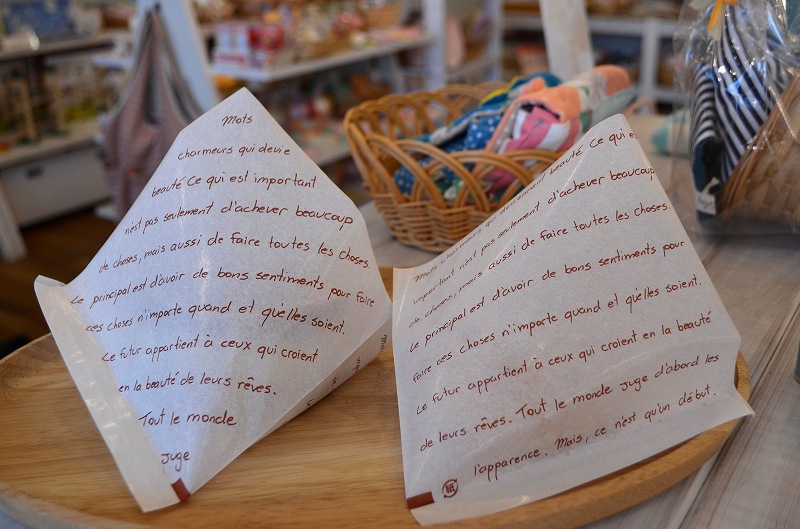 Mots
charmeurs qui devie
beauté Ce qui est important
n'est pas seulement d'achever beaucoup
de choses, mais aussi de faire toutes les choses.
Le principal est d'avoir de bons sentiments pour faire
ces choses n'importe quand et qu'elles soient.
Le futur appartient à ceux qui croient
en la beauté de leurs rêves.
Tout le monde
juge
Mots charmeurs qui devient beauté Ce qui e
important n'est pas seulement d'achever beaucoup
de choses, mais aussi de faire toutes les choses.
Le principal est d'avoir de bons sentiments pour
faire ces choses n'importe quand et qu'elles soient.
Le futur appartient à ceux qui croient en la beauté
de leurs rêves. Tout le monde juge d'abord les
l'apparence. Mais, ce n'est qu'un début.